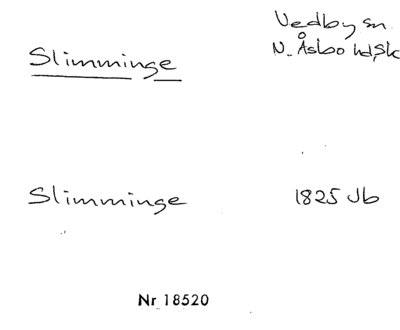 Slimminge
Vedby sn
N. Åsbo hd, Sk
Slimminge
1825 Jb
Nr 18520